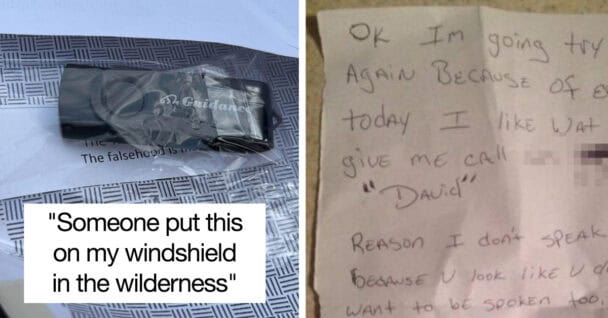 Guidance
The falsehood is
"Someone put this
on my windshield
in the wilderness"
OK Im going try
AgAin BecAuse of
today I like WAt
giVE ME cAll
"DAvid"
REASON I don't SPEAK
BECAUSE U look like U
WANT to bE SPOKEN too.